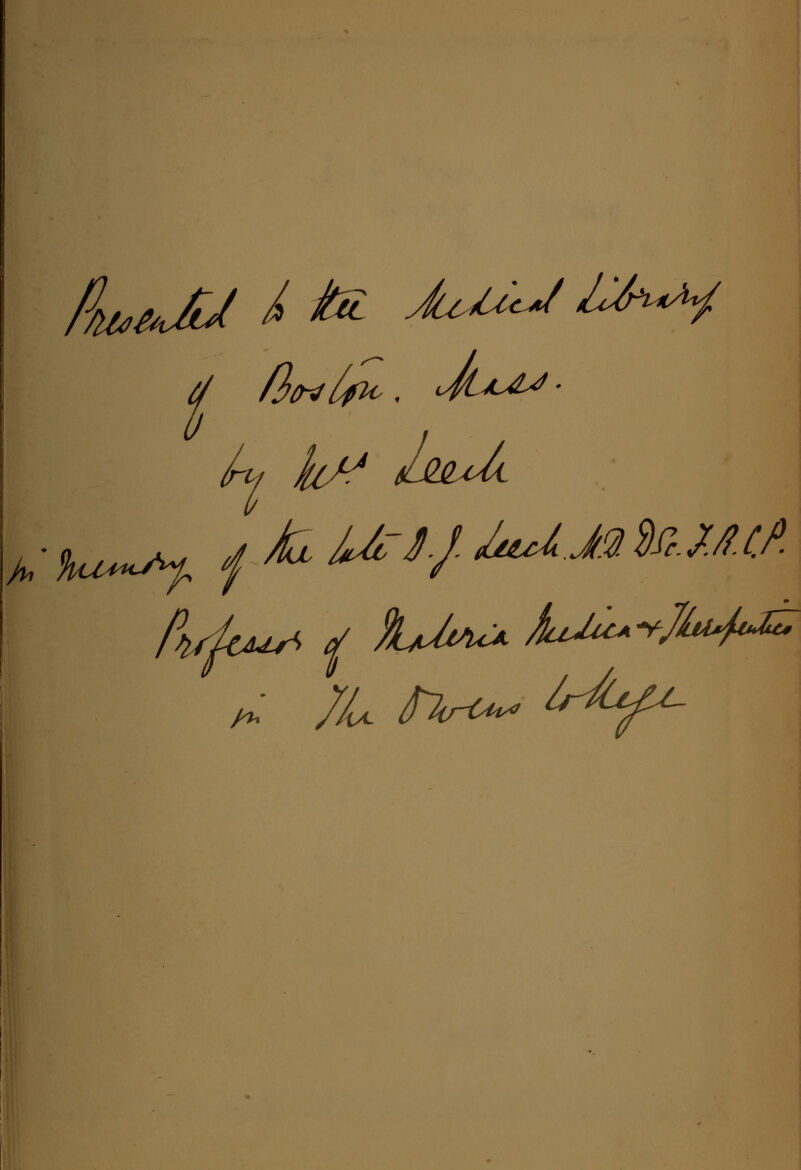 Presented to the Medical Library
of Boston. Mass.
by Mrs Leech
in memory of the late D.J. Leech. M.D. DSc. F.R.C.P.
Professor of Materia Medica & Therapeutics
in The Owens College